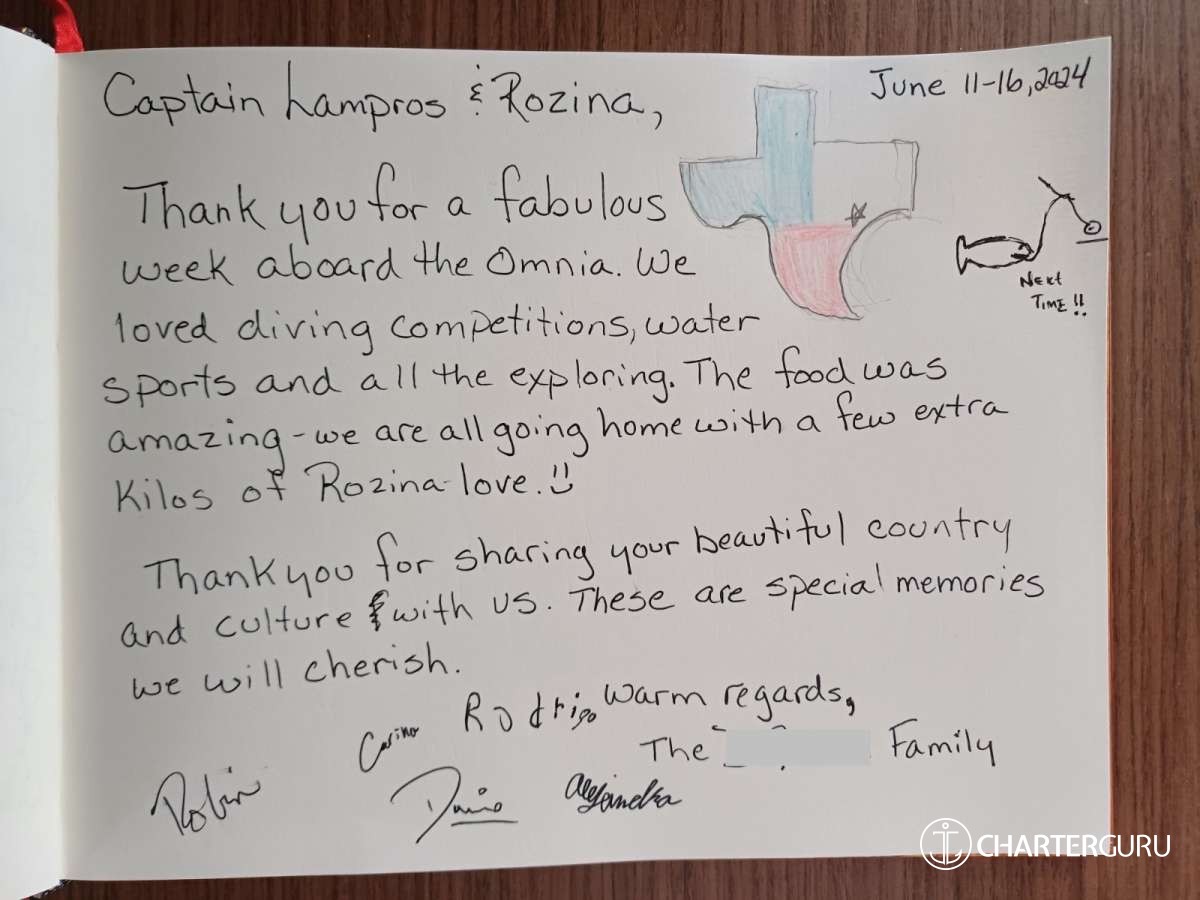 June 11-16, 2024
Captain Lampros & Rozina,
Thank you for a fabulous
week aboard the Omnia. We
loved diving competitions, water
sports and all the exploring. The food was
amazing - we are all going home with a few extra
Kilos of Rozina love.
NEXT
TIME!!
Thank you for sharing your beautiful country
and culture & with us. These are special memories
we will cherish.
Rodrigo Warm regards,
The Family
Robin
Alejandra
CHARTERGURU